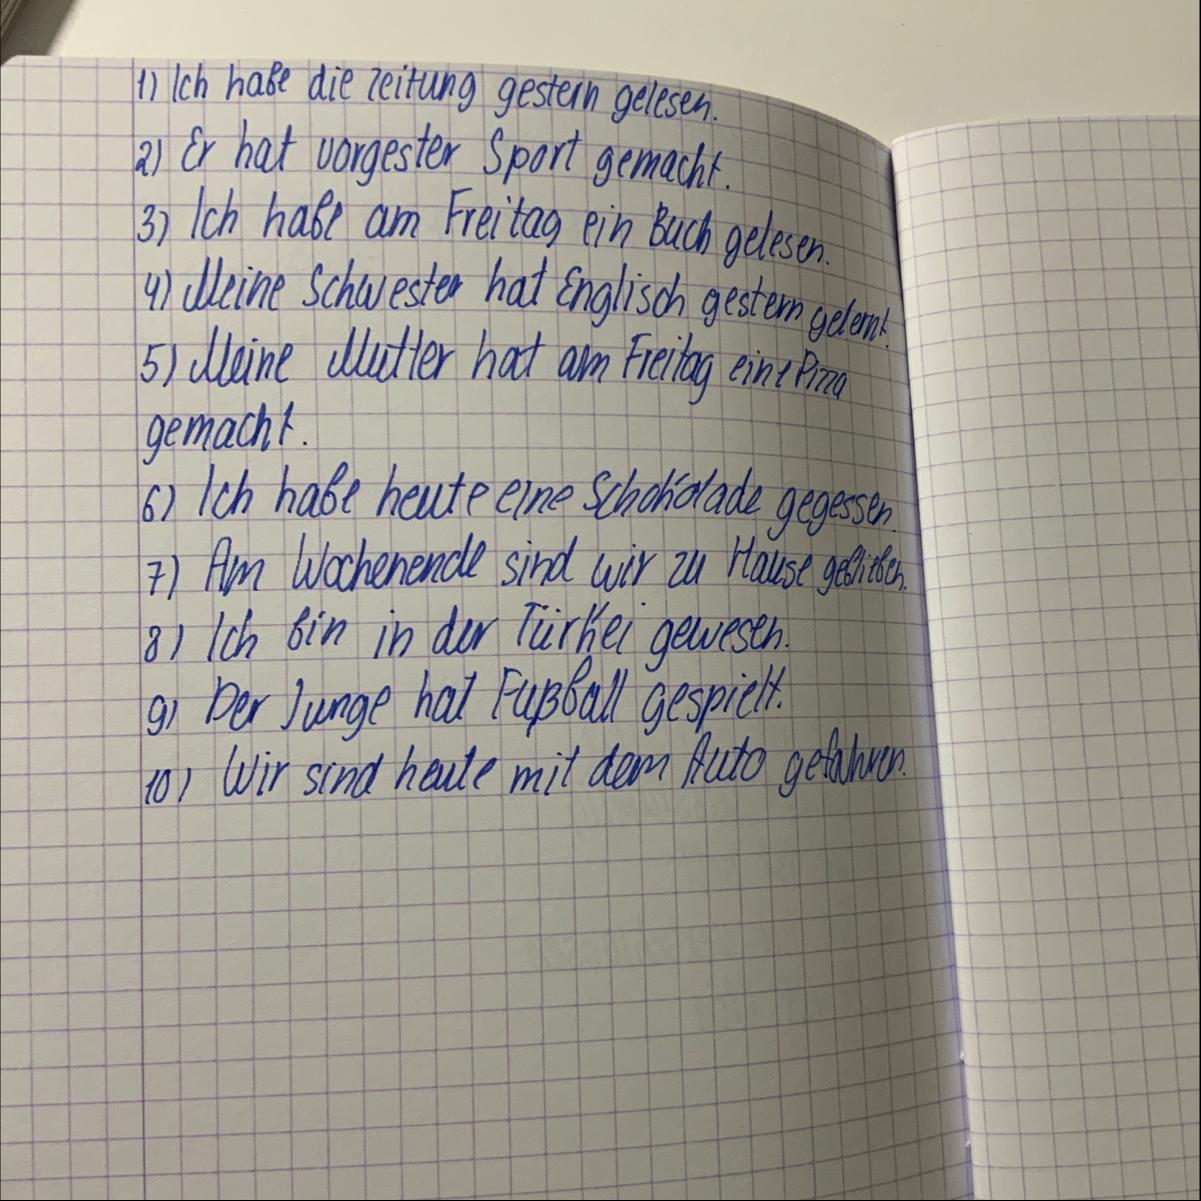 1) Ich habe die Zeitung gestern gelesen.
2) Er hat vorgester Sport gemacht.
3) Ich habe am Freitag ein Buch gelesen.
4) Meine Schwester hat Englisch gestern gelernt.
5) Meine Mutter hat am Freitag eine Pizza
gemacht.
6) Ich habe heute eine Schokolade gegessen.
7) Am Wochenende sind wir zu Hause geblieben.
8) Ich bin in der Türkei gewesen.
9) Der Junge hat Fußball gespielt.
10) Wir sind heute mit dem Auto gefahren.